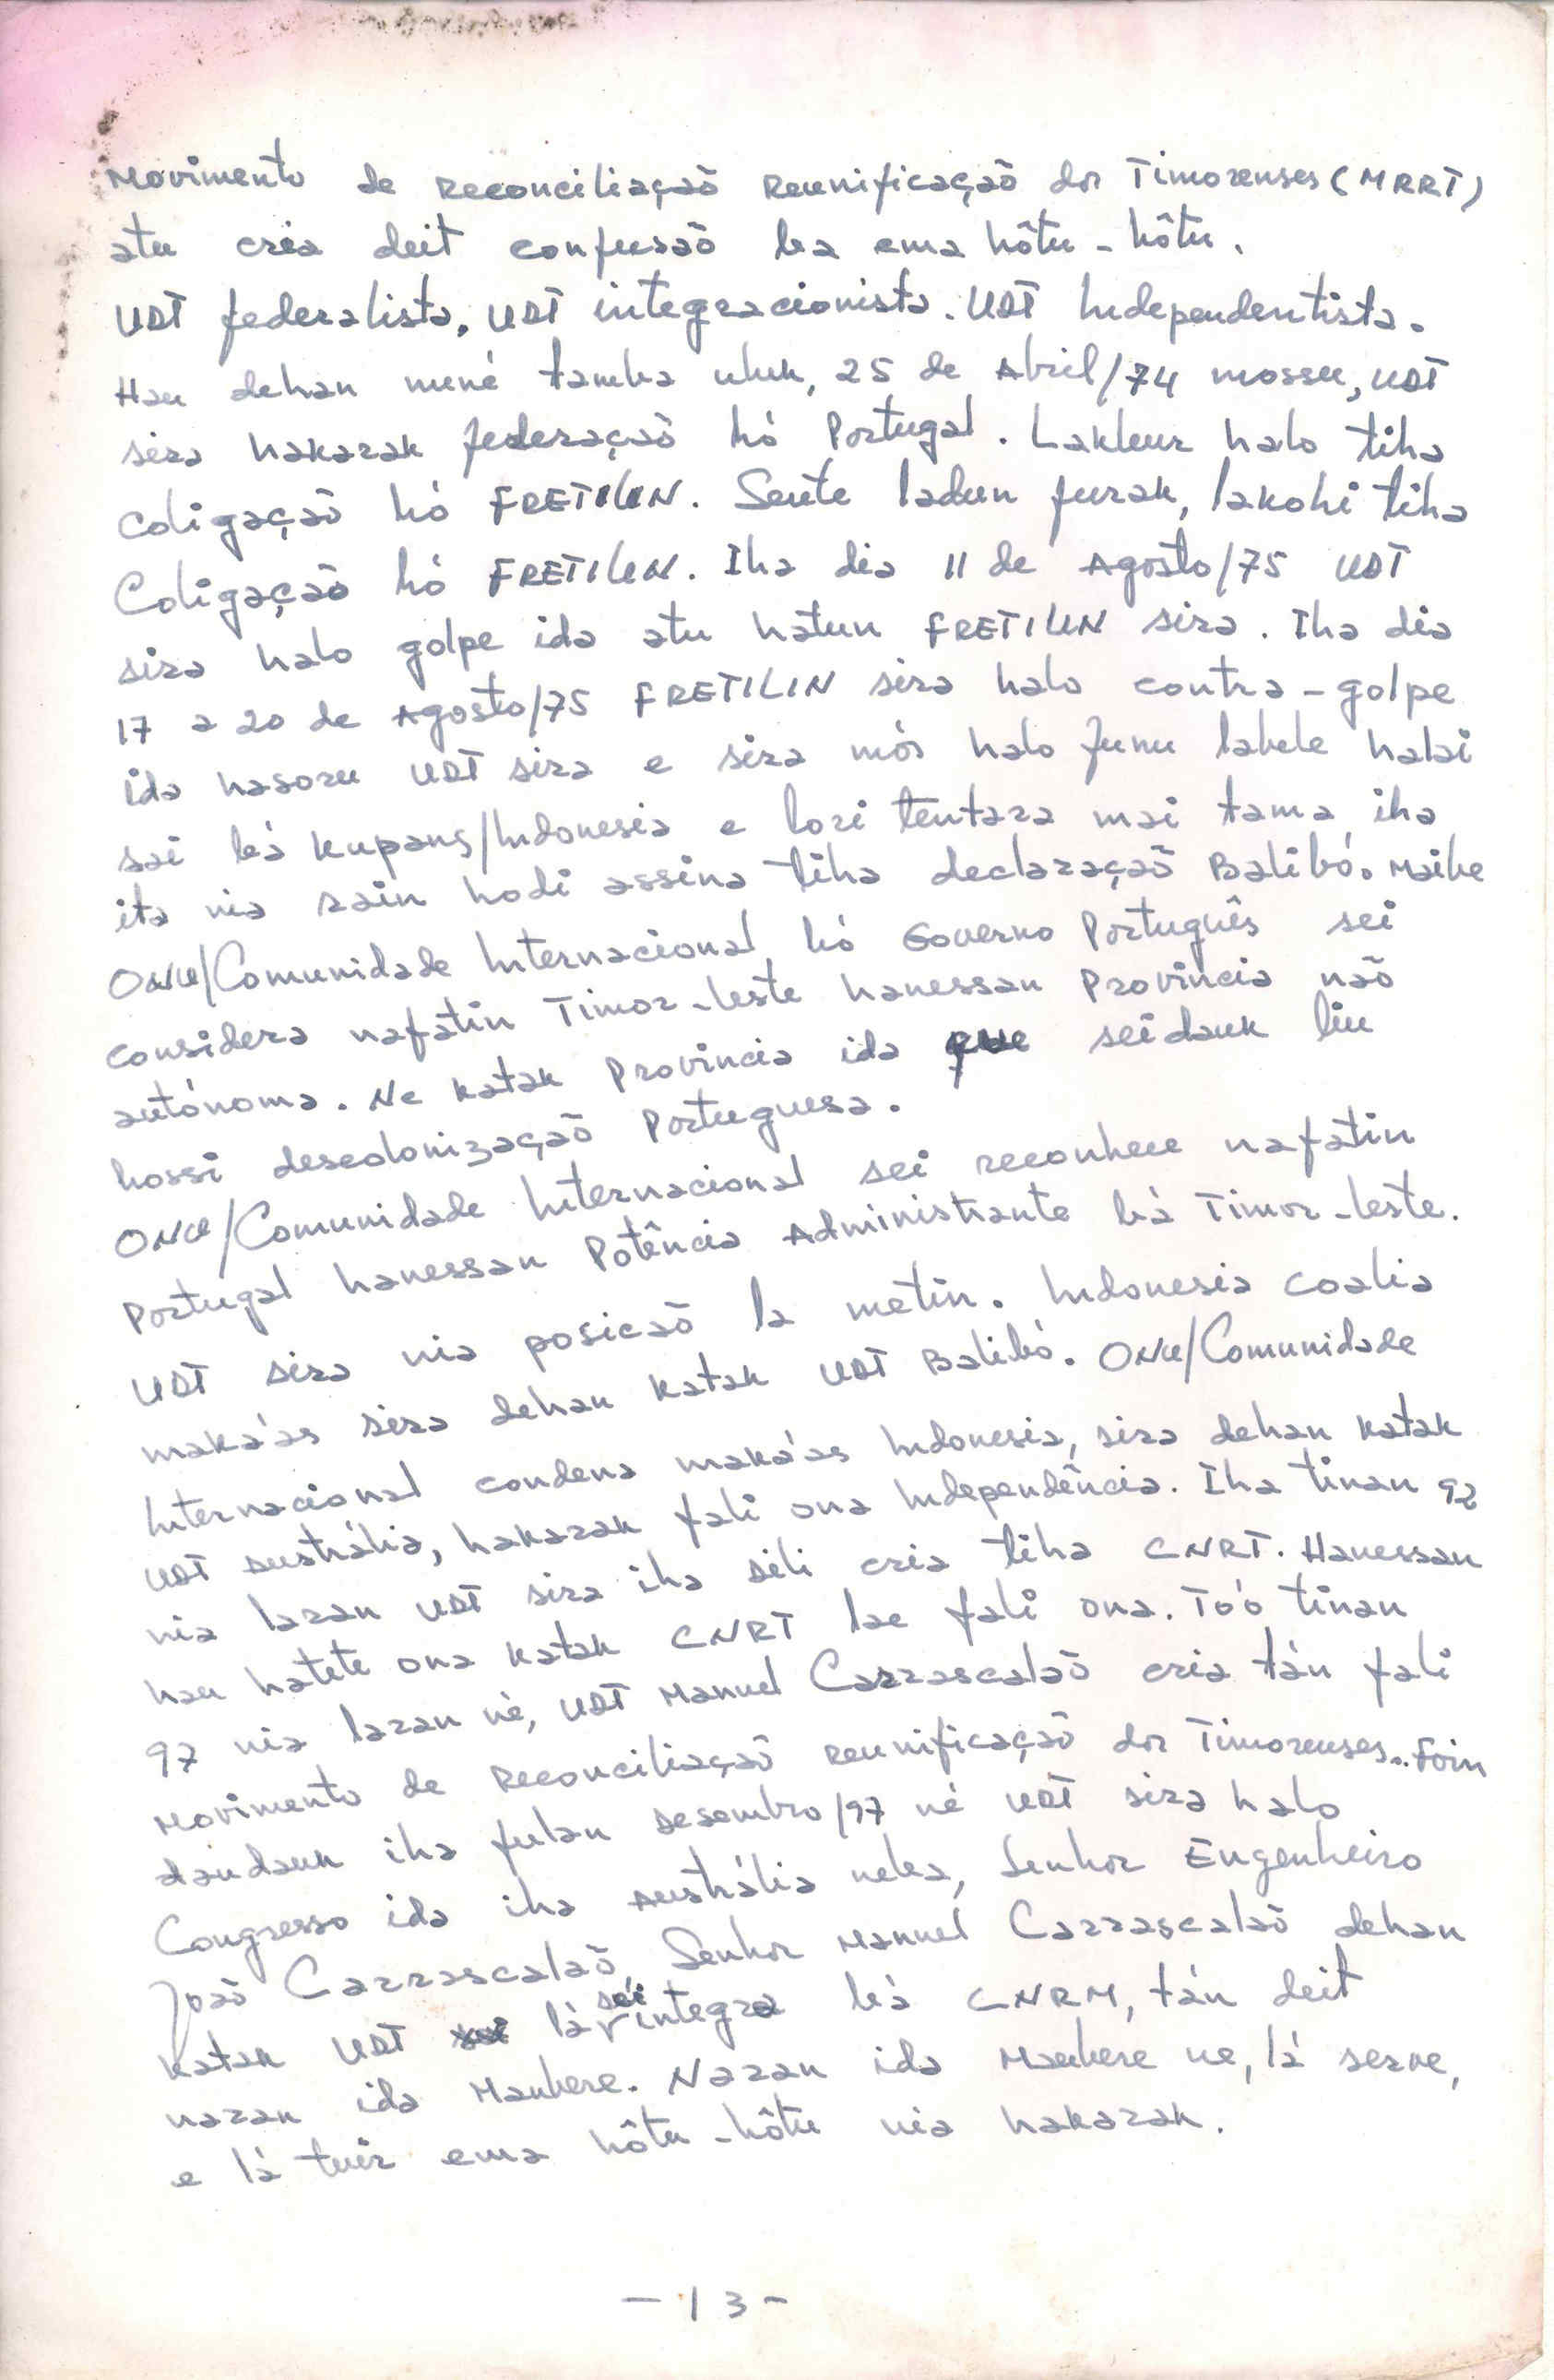 Movimento de Reconciliação Reunificação dos Timorenses (MRRT)
atu cria deit confusaõ ba ema hôtu-hôtu.
UDT federalista. UDT integracionista. UDT Independentista.
Hau dehan nuné tamba uluk, 25 de Abril/74 mossu, UDT
sira hakarak federaçaõ hó Portugal. Lakleur halo tiha
Coligaçaõ hó FRETILIN. Sente ladun furak, lakohi tiha
Coligaçaõ hó FRETILIN. Iha dia 11 de Agosto/75 UDT
sira halo golpe ida atu hatun FRETILIN sira. Iha dia
17 a 20 de Agosto/75 FRETILIN sira halo contra-golpe
ida hasoru UDT sira e sira mós halo funu labele halai
sai bá Kupang/Indonesia e lori tentara mai tama iha
ita nia rain hodi assina tiha declaraçaõ Balibó. Maibe
ONU/Comunidade Internacional hó Governo Português sei
considera nafatin Timor-leste hanessan Provincia naõ
autónoma. Ne katak Provincia ida que seidauk liu
hossi descolonizaçaõ Portuguesa.
ONU/Comunidade Internacional sei reconhece nafatin
Portugal hanessan Potência Administrante bá Timor-leste.
UDT sira nia posicaõ la metin. Indonesia coalia
maka'as sira dehan katak UDT Balibó. ONU/Comunidade
Internacional condena maka'as Indonesia, sira dehan katak
UDT Austrália, hakarak fali ona Independência. Iha tinan 92
nia laran UDT sira iha seli cria tiha CNRT. Hanessan
hau hatete ona katak CNRT lae fali ona. To'o tinan
97 nia laran né, UDT Manuel Carrascalaõ cria tán fali
Movimento de Reconciliaçaõ reunificaçaõ dos Timorenses.. Foin
daudauk iha fulan sesembro/97 né UDT sira halo
Congresso ida iha Austrália neba, Senhor Engenheiro
Joaõ Carrascalaõ, Senhor Manuel Carrascalaõ dehan
katak UDT lá sei integra bá CNRM, tán deit
naran ida Maubere. Naran ida Maubere ne, lá serve,
e lá tuir ema hôtu-hôtu nia hakarak.
-13-